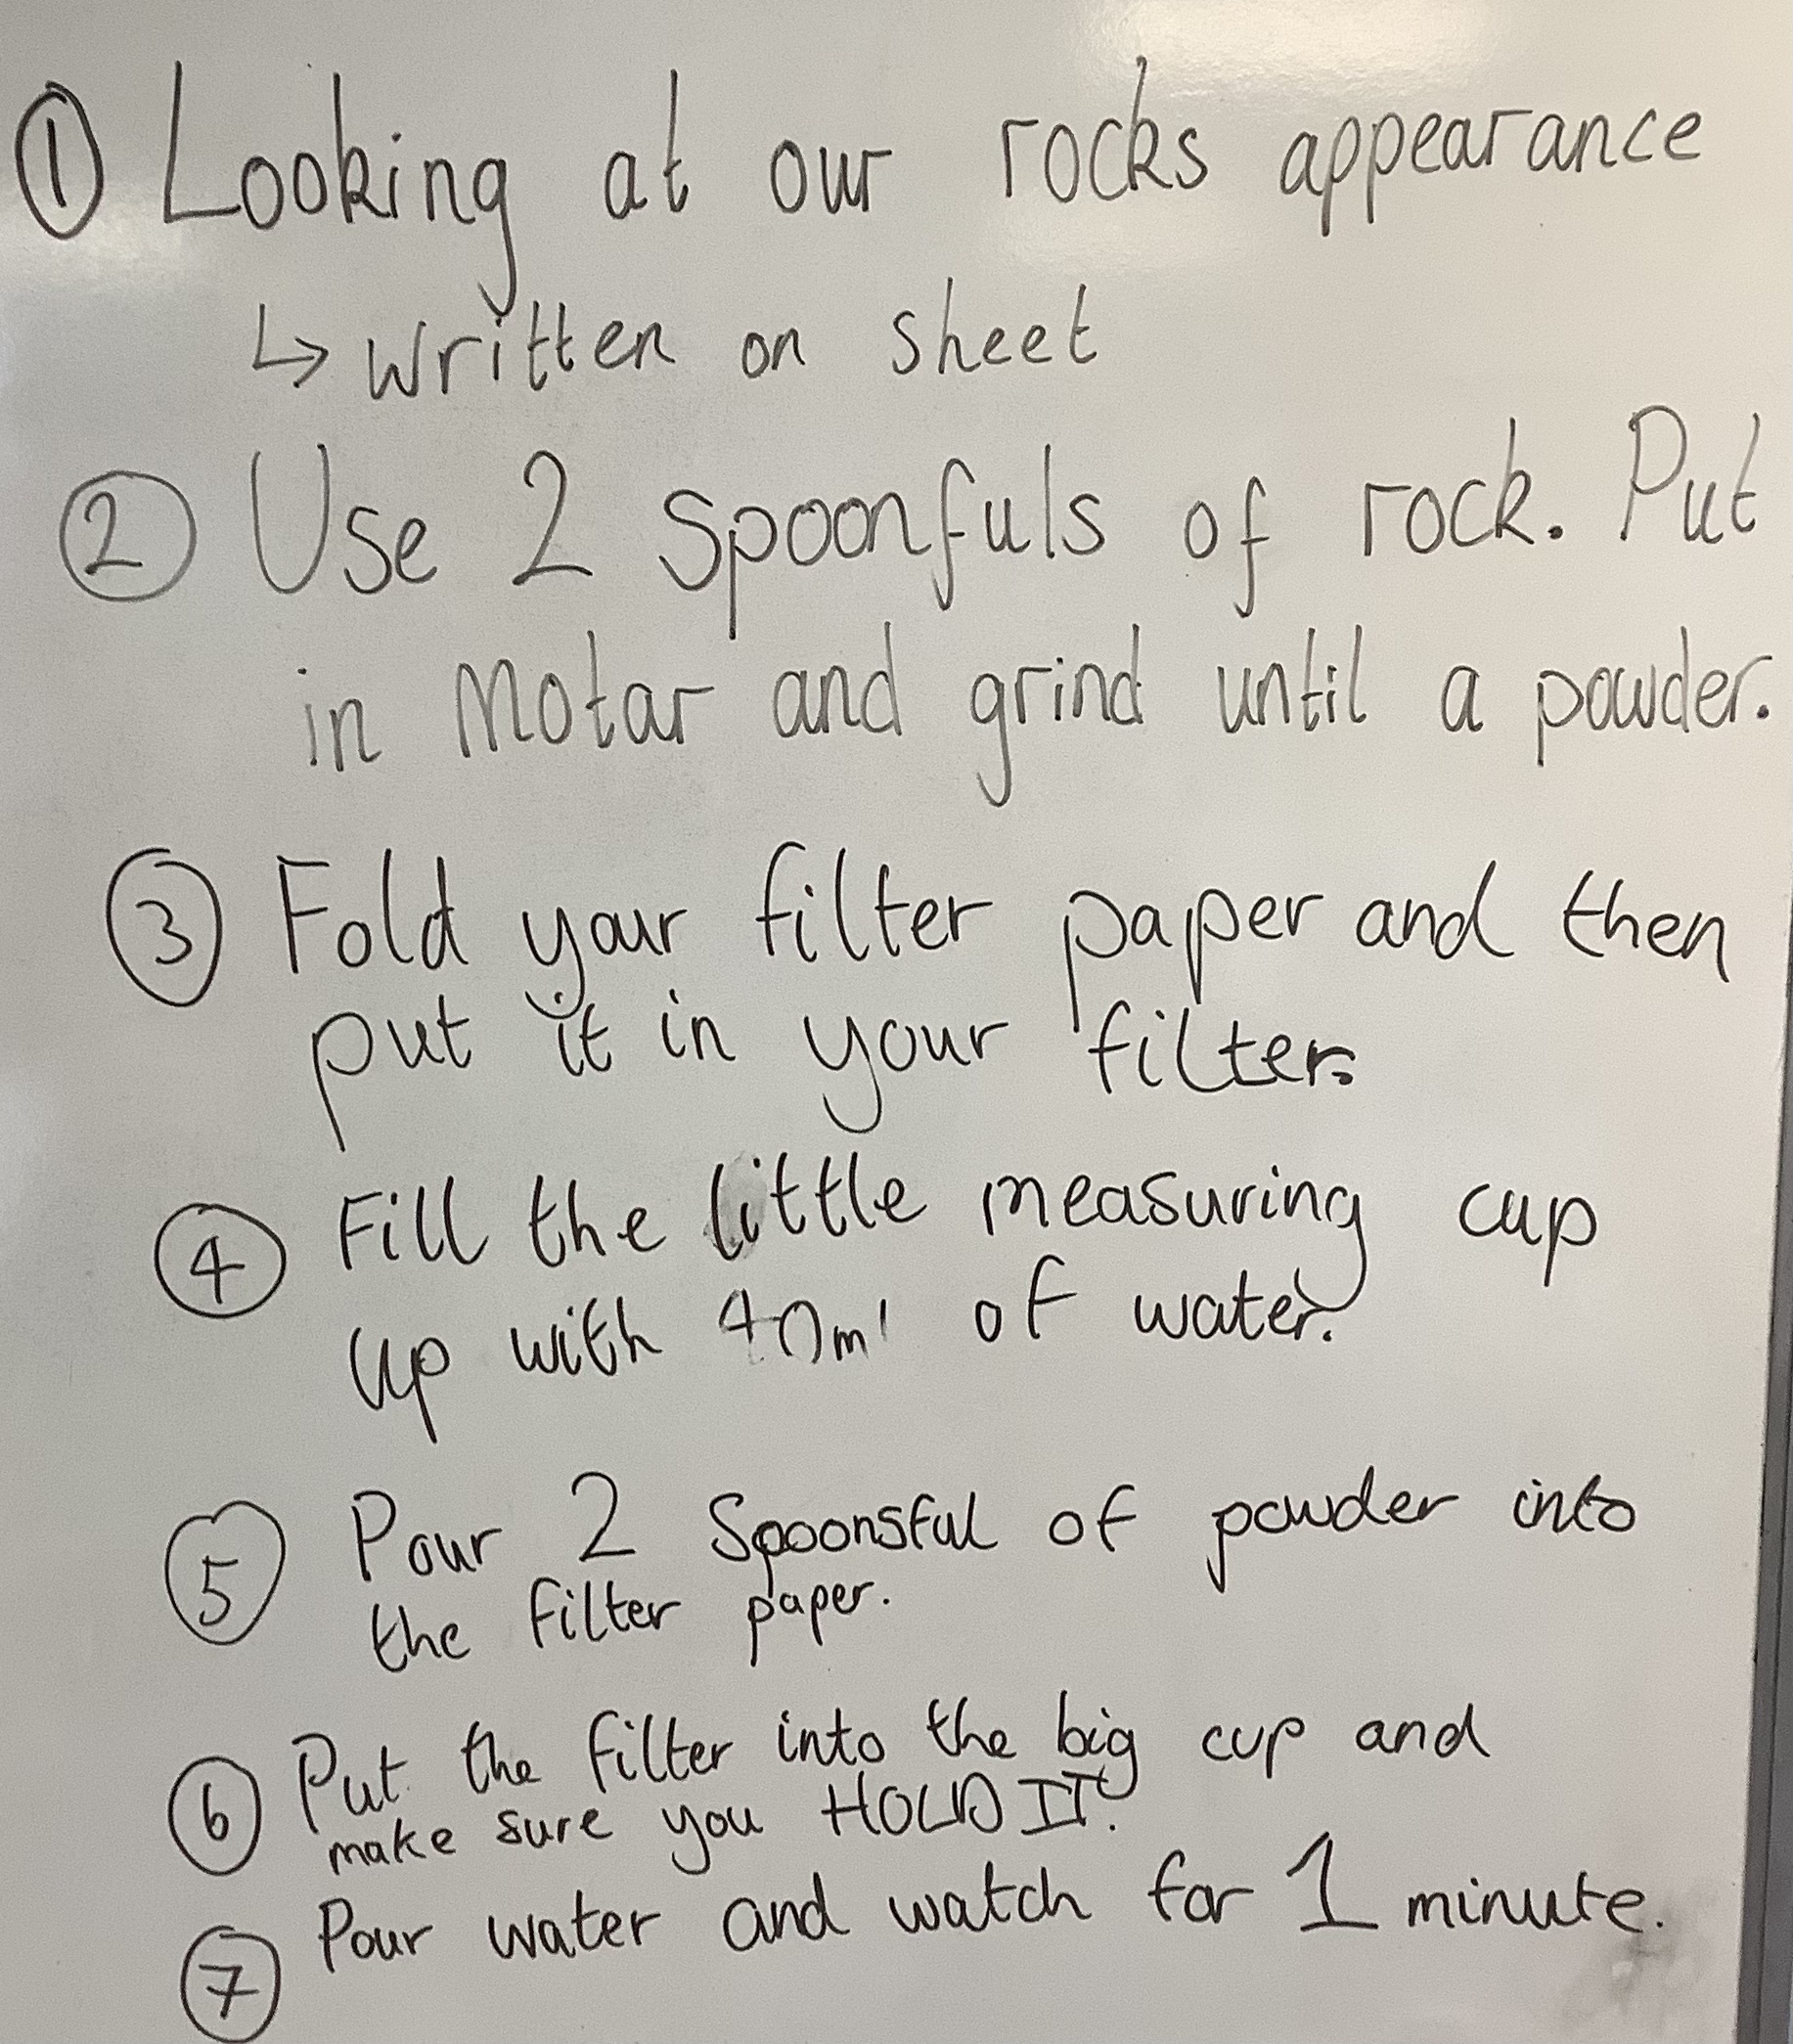 ① Looking at our rocks appearance
↳ written on sheet
② Use 2 spoonfuls of rock. Put
in motar and grind until a powder.
③ Fold your filter paper and then
put it in your filter.
④ Fill the little measuring cup
up with 40ml of water.
⑤ Pour 2 spoonsful of powder into
the filter paper.
⑥ Put the filter into the big cup and
make sure you HOLD IT!
⑦ Pour water and watch for 1 minute.